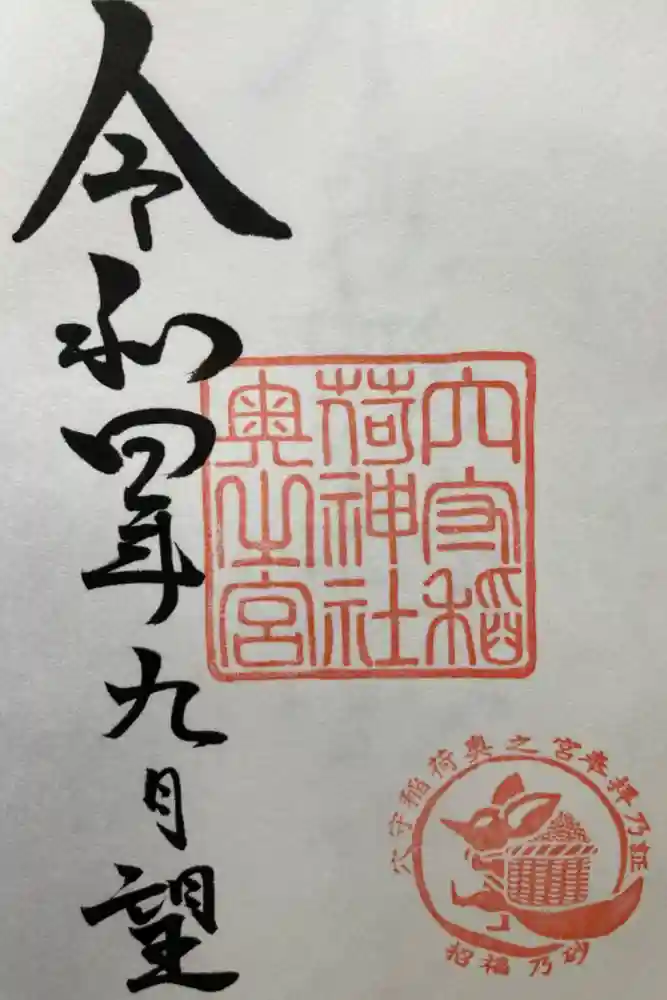 令和四年九月望
穴守稲
荷神社
奥之宮
穴守稲荷奥之宮奉拝乃証
招福乃砂